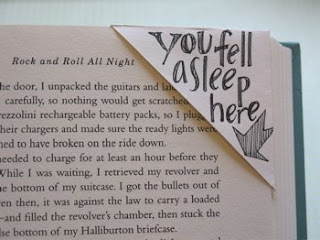 you fell
asleep
here
Rock and Roll All Night
door, I unpacked the guitars and
carefully, so nothing would get scratched
rezzolini rechargeable battery packs, so I
heir chargers and made sure the ready lights
ned to have broken on the ride down.
needed to charge for at least an hour before they
While I was waiting, I retrieved my revolver and
e bottom of my suitcase. I got the bullets out of
en then, it was against the law to carry a loaded
—and filled the revolver's chamber, then stuck the
lse bottom of my Halliburton briefcase.